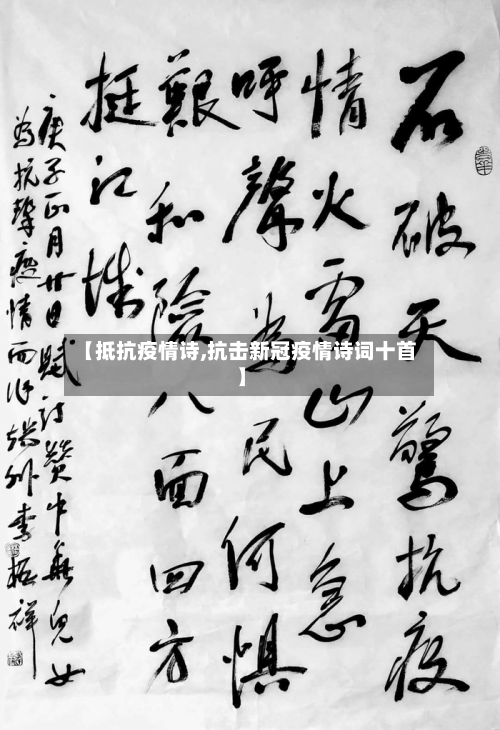 石破天驚抗疫
情火雷山上急
呼聲为民何惧
艱和險八面四方
挺江城
庚子正月廿日赋诗赞中華兒女
为抗擊疫情而作 外李 祥
【抵抗疫情诗,抗击新冠疫情诗词十首
】